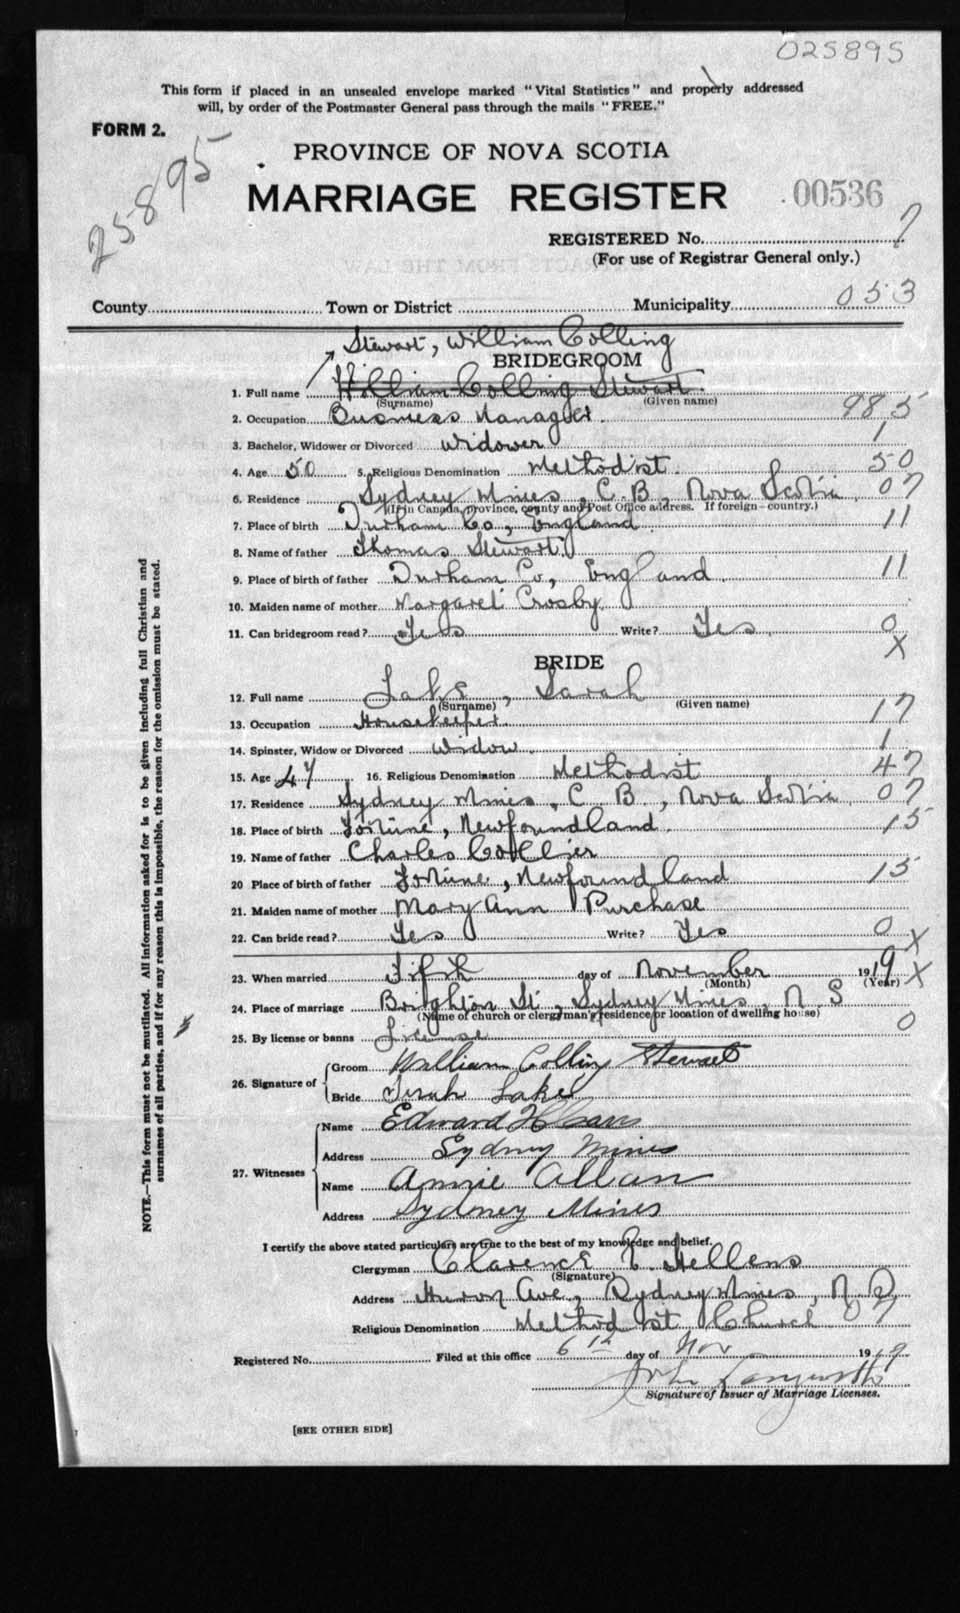 025895
This form if placed in an unsealed envelope marked "Vital Statistics" and properly addressed
will, by order of the Postmaster General pass through the mails "FREE."
FORM 2.
25895
PROVINCE OF NOVA SCOTIA
MARRIAGE REGISTER 00536
REGISTERED No. 7
(For use of Registrar General only.)
County Town or District Municipality 053
Stewart, William Colling
BRIDEGROOM
1. Full name William Colling Stewart
(Surname) (Given name)
2. Occupation Business Manager. 985
3. Bachelor, Widower or Divorced Widower 1
4. Age 50 5. Religious Denomination Methodist. 50
6. Residence Sydney Mines, C. B., Nova Scotia 07
(If in Canada, province, county and Post Office address. If foreign—country.)
7. Place of birth Durham Co, England 11
8. Name of father Thomas Stewart
9. Place of birth of father Durham Co, England 11
10. Maiden name of mother Margaret Crosby
11. Can bridegroom read? Yes Write? Yes 0
X
BRIDE
12. Full name Lake, Sarah
(Surname) (Given name)
13. Occupation Housekeeper 17
14. Spinster, Widow or Divorced Widow. 1
15. Age 47 16. Religious Denomination Methodist 47
17. Residence Sydney Mines, C. B., Nova Scotia 07
18. Place of birth Fortune, Newfoundland 15
19. Name of father Charles Collier
20 Place of birth of father Fortune, Newfoundland 15
21. Maiden name of mother Mary Ann Purchase
22. Can bride read? Yes Write? Yes 0 X
23. When married Fifth day of November 1919 X
(Month) (Year)
24. Place of marriage Brighton St, Sydney Mines, N. S
(Name of church or clergyman's residence or location of dwelling house)
25. By license or banns License 0
26. Signature of Groom William Colling Stewart
Bride Sarah Lake
27. Witnesses Name Edward H
Address Sydney Mines
Name Annie Allan
Address Sydney Mines
I certify the above stated particulars are true to the best of my knowledge and belief.
Clergyman Clarence Hellens
(Signature)
Address Huron Ave, Sydney Mines, N. S.
Religious Denomination Methodist Church 07
Registered No. Filed at this office 6th day of Nov 1919
John Langworth
Signature of Issuer of Marriage Licenses.
[SEE OTHER SIDE]
NOTE.—This form must not be mutilated. All information asked for is to be given including full Christian and
surnames of all parties, and if for any reason this is impossible, the reason for the omission must be stated.